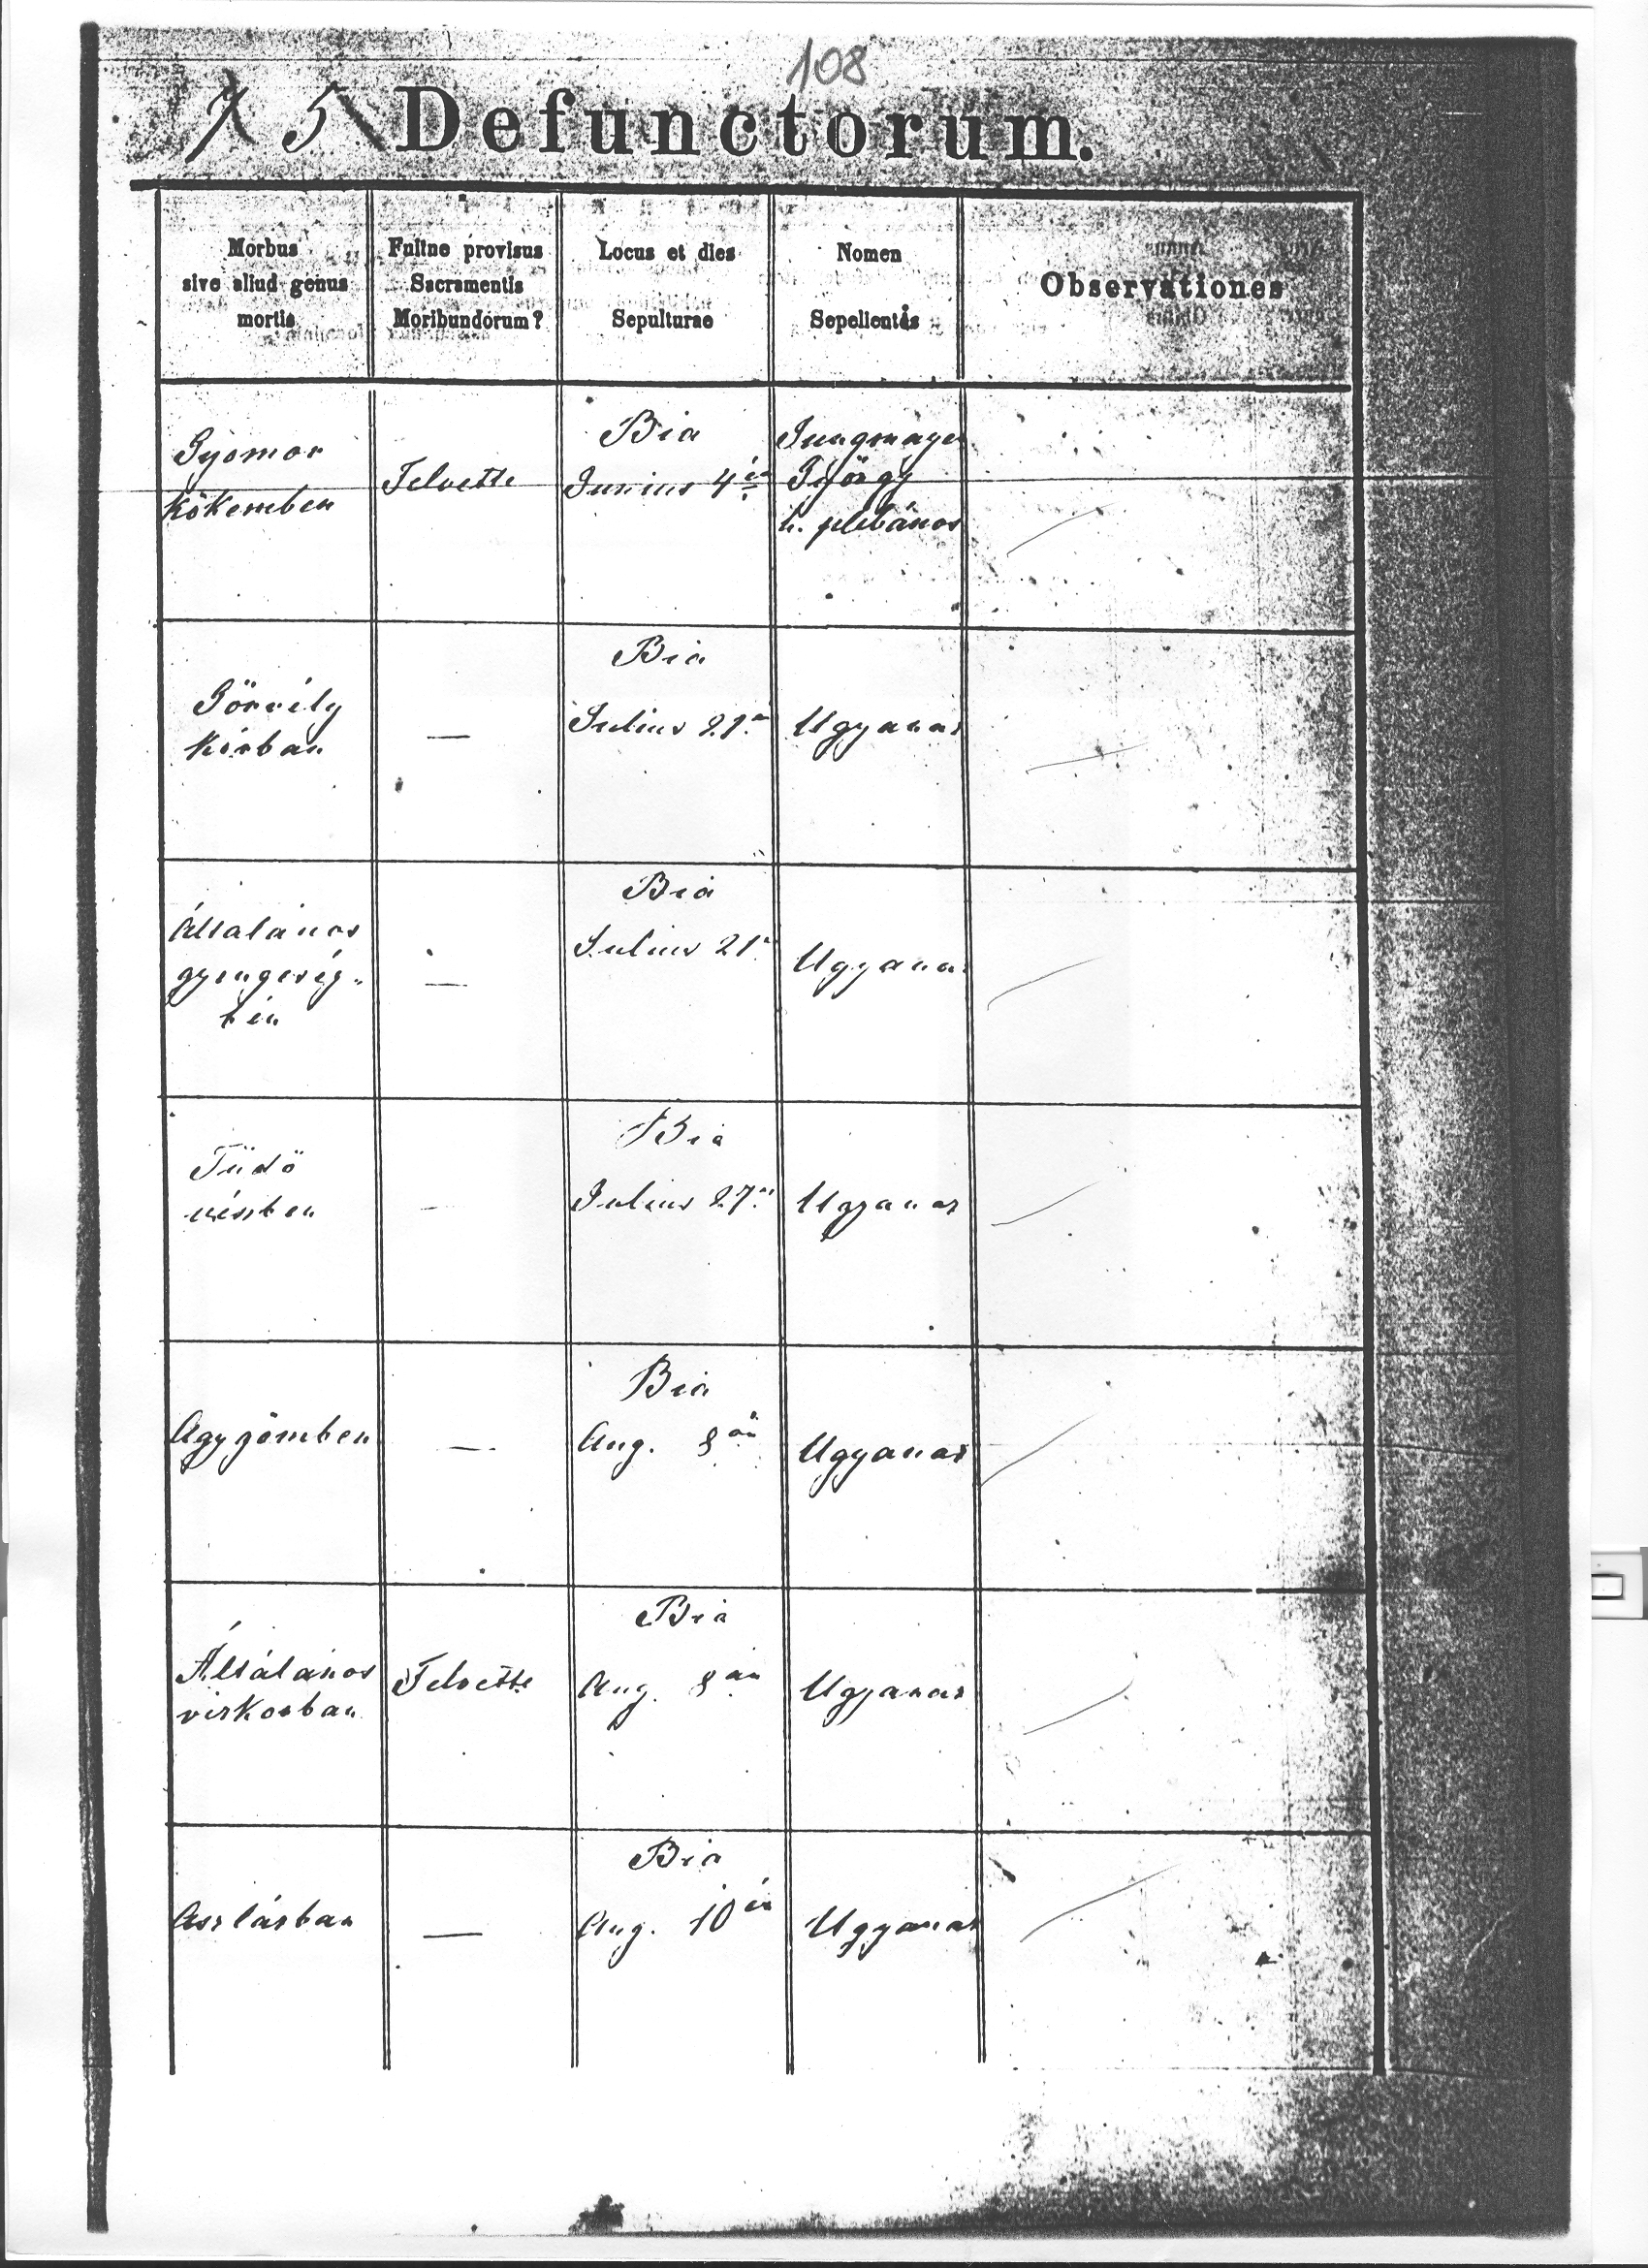 108
75 Defunctorum.
Morbus
sive aliud genus
mortis
Fuitne provisus
Sacramentis
Moribundorum?
Locus et dies
Sepulturae
Nomen
Sepelientis
Observationes
Gyomor
kökemben
Felvette
Bia
Junius 4én
Jungmayer
György
h. plébános
Görvély
kórban
—
Bia
Julius 21én
Ugyanaz
Általános
gyengeség-
ben
—
Bia
Julius 21
Ugyanaz
Tüdő
vészben
—
Bia
Julius 27n
Ugyanaz
Agygömben
—
Bia
Aug. 8án
Ugyanaz
Általános
vizkorban
Felvette
Bia
Aug. 8án
Ugyanaz
Aszlásban
—
Bia
Aug. 10én
Ugyanaz